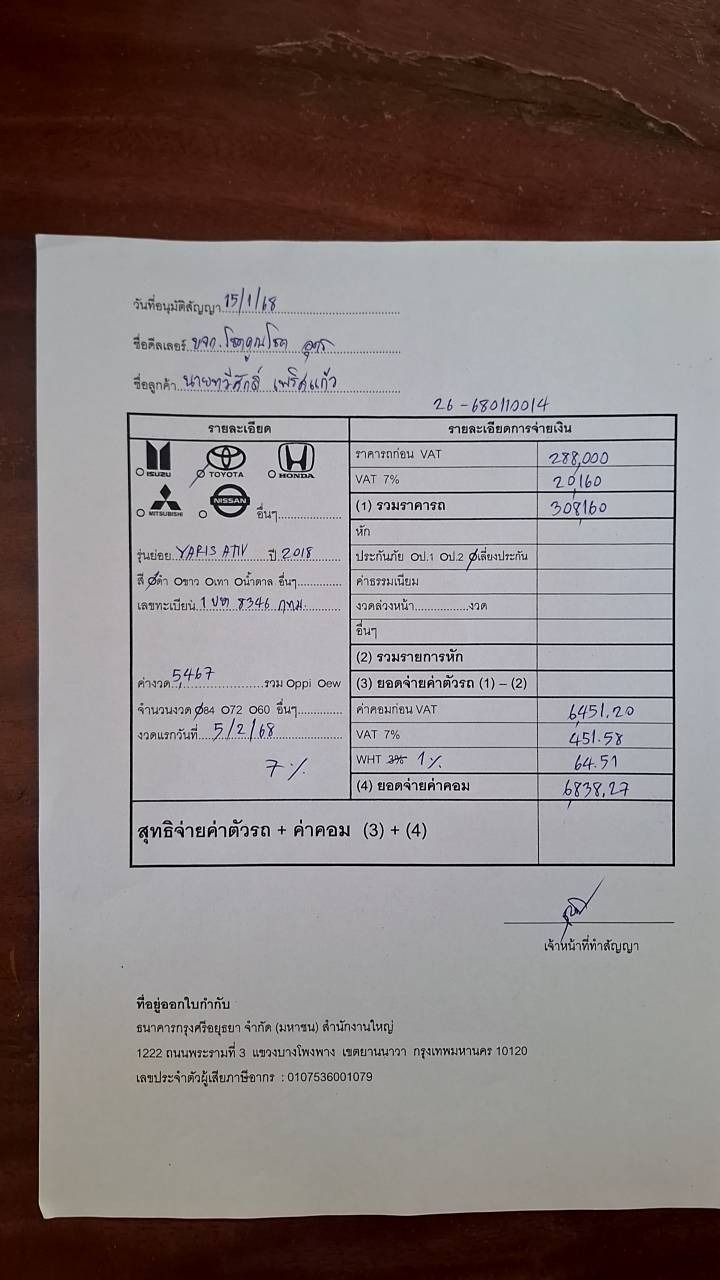 วันที่อนุมัติสัญญา 15/1/68
ชื่อดีลเลอร์ หจก.โชคคูณโชค อุดร
ชื่อลูกค้า นายทวีศักดิ์ เพริศแก้ว
26-680110014
รายละเอียด รายละเอียดการจ่ายเงิน
ISUZU TOYOTA HONDA
MITSUBISHI NISSAN อื่นๆ
ราคารถก่อน VAT 288,000
VAT 7% 20,160
(1) รวมราคารถ 308,160
หัก
รุ่นย่อย YARIS ATIV ปี 2018
ประกันภัย Oป.1 Oป.2 Oเลี่ยงประกัน
สี Oดำ Oขาว Oเทา Oน้ำตาล อื่นๆ
ค่าธรรมเนียม
เลขทะเบียน 8346 กทม.
งวดล่วงหน้า.................งวด
อื่นๆ
(2) รวมรายการหัก
ค่างวด 5,467 รวม Oppi Oew
(3) ยอดจ่ายค่าตัวรถ (1) – (2)
จำนวนงวด O84 O72 O60 อื่นๆ
ค่าคอมก่อน VAT 6,451.20
งวดแรกวันที่ 5/2/68
VAT 7% 451.58
7%
WHT 3% 1% 64.51
(4) ยอดจ่ายค่าคอม 6,838.27
สุทธิจ่ายค่าตัวรถ + ค่าคอม (3) + (4)
เจ้าหน้าที่ทำสัญญา
ที่อยู่ออกใบกำกับ
ธนาคารกรุงศรีอยุธยา จำกัด (มหาชน) สำนักงานใหญ่
1222 ถนนพระรามที่ 3 แขวงบางโพงพาง เขตยานนาวา กรุงเทพมหานคร 10120
เลขประจำตัวผู้เสียภาษีอากร : 0107536001079